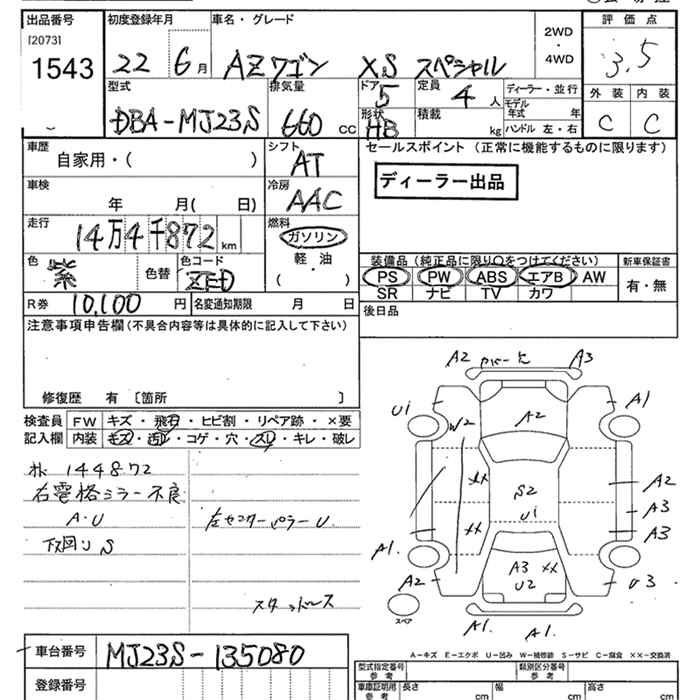 出品番号 初度登録年月 車名・グレード 評価点
[2073]
1543 22 6月 AZワゴン XS スペシャル 2WD ・ 4WD 3.5
型式 排気量 ドア 5 定員 4人 ディーラー・並行 外装 内装
DBA-MJ23S 660 CC 形状 HB 積載 kg モデル年式 年 ハンドル 左・右 C C
車歴 シフト セールスポイント (正常に機能するものに限ります)
自家用・( ) AT
車検 冷房 ディーラー出品
年 月( 日) AAC
走行 燃料
14万4千872 km ガソリン
色 色替 色コード 軽・油 装備品(純正品に限り○をつけてください) 新車保証書
紫 ZED ( ) PS PW ABS エアB AW 有・無
SR ナビ TV カワ
R券 10,100円 名変通知期限 月 日 後日品
注意事項申告欄(不具合内容等は具体的に記入して下さい)
修復歴 有 〔箇所 〕
検査員 FW キズ・飛石・ヒビ割・リペア跡・×要
記入欄 内装 キズ・汚レ・コゲ・穴・スレ・キレ・破レ
144872
右電格ミラー不良
A・U 左センターピラーU
下回りS
スタッドレス
A2 A3
U1 A2 A1
W2
XX S2 A2
U1 A3
XX A3
A1. A3 XX
A2 U2 U3
スペア
A1. A1.
A-キズ E-エクボ U-凹み W-補修跡 S-サビ C-腐食 XX-交換済
車台番号 MJ23S-135080
型式指定番号 参考 類別区分番号 参考
登録番号
車庫証明用 参考 長さ cm 幅 cm 高さ cm